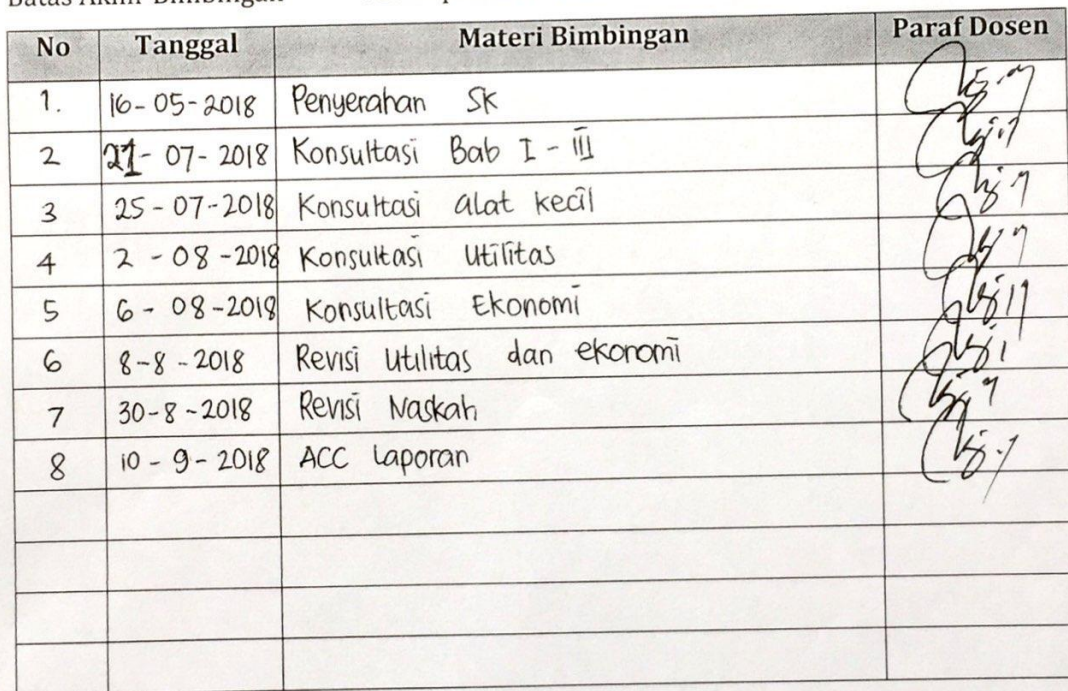 Batas Akhir Bimbingan
No Tanggal Materi Bimbingan Paraf Dosen
1. 16-05-2018 Penyerahan SK
2 21-07-2018 Konsultasi Bab I - III
3 25-07-2018 Konsultasi alat kecil
4 2-08-2018 Konsultasi Utilitas
5 6-08-2018 Konsultasi Ekonomi
6 8-8-2018 Revisi Utilitas dan ekonomi
7 30-8-2018 Revisi Naskah
8 10-9-2018 ACC Laporan